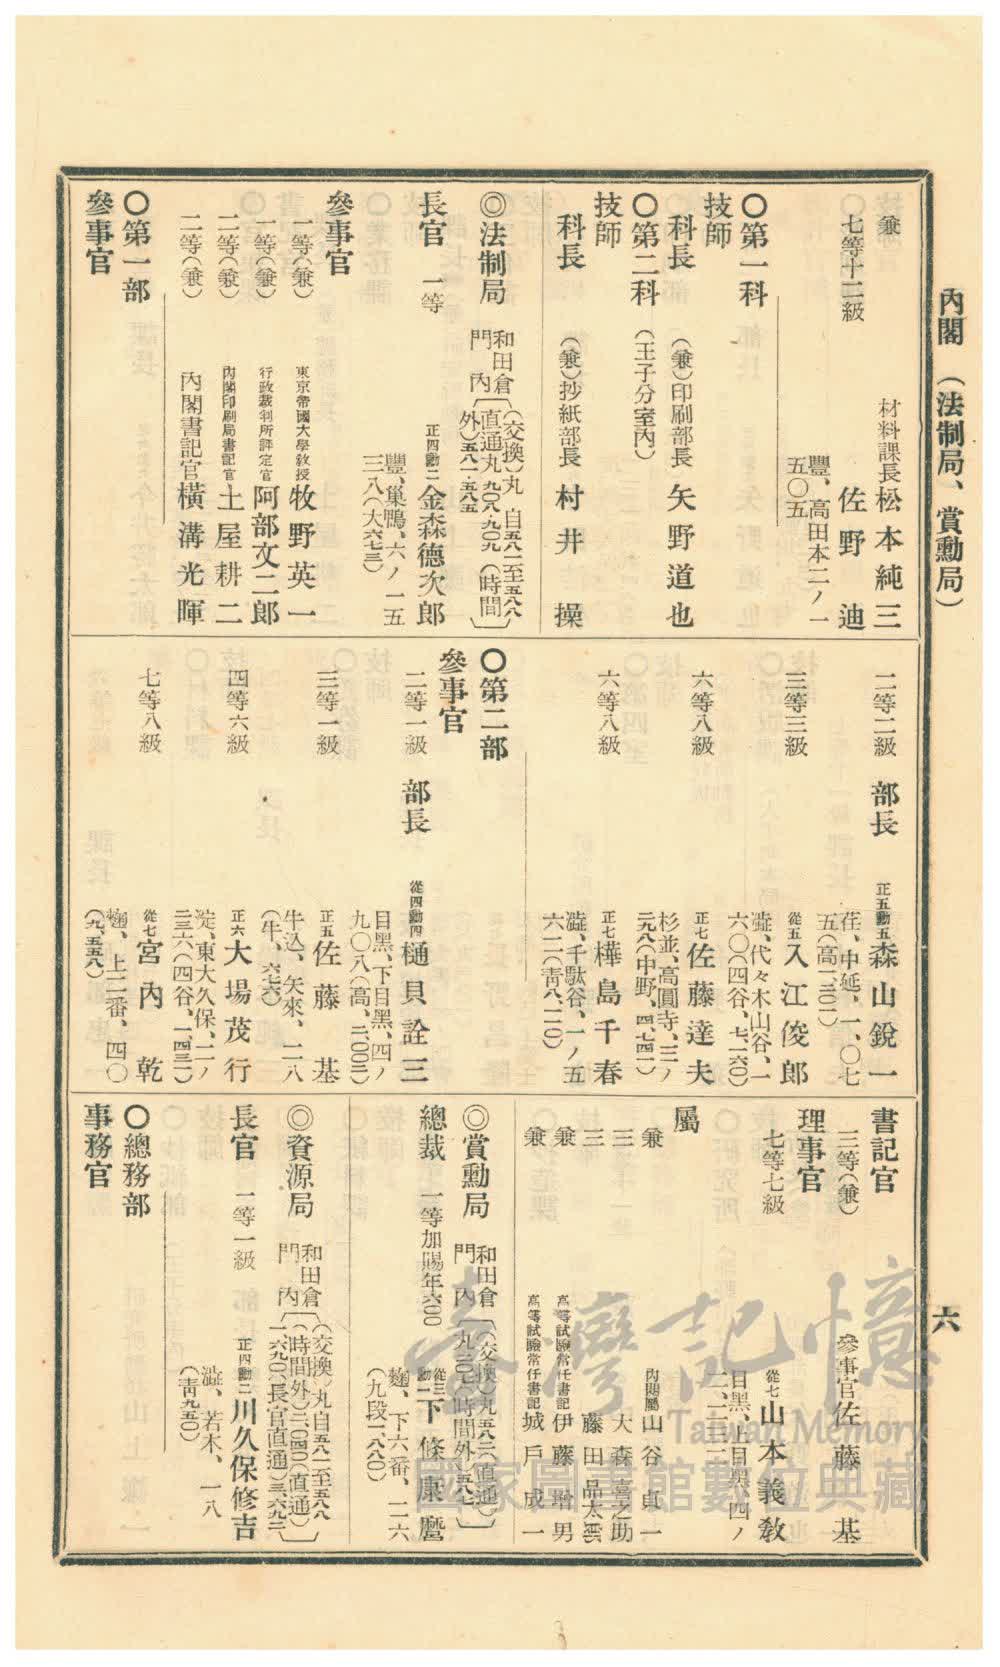 內閣 (法制局、賞勳局)
六
兼 材料課長 松本純三
七等十二級 佐野迪
豐、高田本二ノ一
五〇五
〇第一科
技師
科長 (兼)印刷部長 矢野道也
〇第二科 (王子分室內)
技師
科長 (兼)抄紙部長 村井操
◎法制局 和田倉門內
(交換)丸 自五八一至五八八
直通丸九〇八・九〇九(時間
外)五八一・五八五
長官 一等 正四勳二 金森德次郎
豐、巢鴨、六ノ一五
三八(大六七三)
參事官
一等(兼) 東京帝國大學教授 牧野英一
一等(兼) 行政裁判所評定官 阿部文二郎
二等(兼) 內閣印刷局書記官 土屋耕二
二等(兼) 內閣書記官 橫溝光暉
〇第一部
參事官
二等二級 部長 正五勳五 森山銳一
荏、中延、一、〇七
五(高一三〇二)
三等三級 從五 入江俊郎
澁、代々木山谷、一
六〇(四谷、七一六〇)
六等八級 正七 佐藤達夫
杉並、高圓寺、三ノ
二九八(中野、四七四二)
六等八級 正七 樺島千春
澁、千駄谷、一ノ五
六二(靑八、二〇)
〇第二部
參事官
二等一級 部長 從四勳四 樋貝詮三
目黑、下目黑、四ノ
九〇八(高、三〇〇三)
三等一級 正五 佐藤基
牛込、矢來、二八
(牛、六七六)
四等六級 正六 大場茂行
淀、東大久保、二ノ
三三六(四谷、一、四三一)
七等八級 從七 宮內乾
麴、上二番、四〇
(九、五五八)
書記官
三等(兼) 參事官 佐藤基
理事官
七等七級 從七 山本義敎
目黑、上目黑、四ノ
二、二三二
屬
兼 內閣屬 山谷貞一
三 大森喜之助
三 藤田品太雲
兼 高等試驗常任書記 伊藤增男
兼 高等試驗常任書記 城戶成一
◎賞勳局 和田倉門內
(交換)丸五八二(直通)
丸三〇七(時間外)五八七
總裁 一等加賜年六〇〇 從三勳一 下條康麿
麴、下六番、二六
(九段一、八八〇)
◎資源局 和田倉門內
(交換)丸自五八一至五八八
(時間外)二、〇四〇(直通)
一六九〇(長官直通)三、六九二
長官 一等一級 正四勳二 川久保修吉
澁、若木、一八
(靑九五〇)
〇總務部
事務官
臺灣記憶
Taiwan Memory
國家圖書館數位典藏